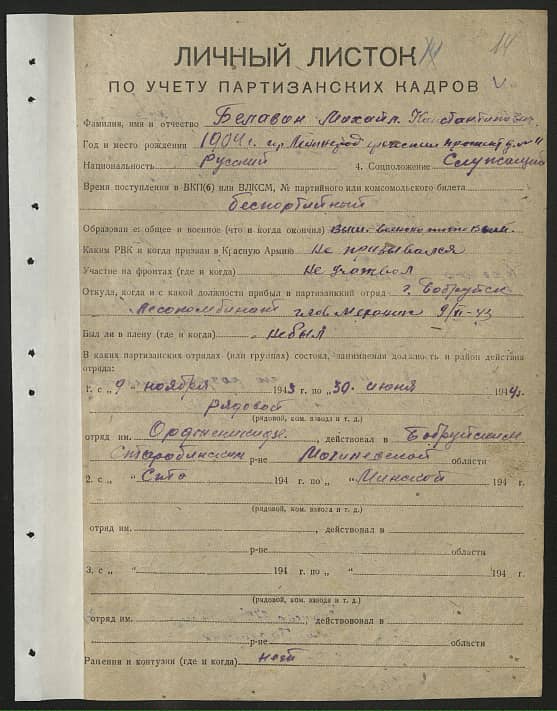 14
ЛИЧНЫЙ ЛИСТОК
ПО УЧЕТУ ПАРТИЗАНСКИХ КАДРОВ
Фамилия, имя и отчество Белаван Михаил Константинович
Год и место рождения 1904 г. гр.
Национальность Русский 4. Соцположение Служащий
Время поступления в ВКП(б) или ВЛКСМ, № партийного или комсомольского билета
беспартийный
Образование общее и военное (что и когда окончил) Выш.
Каким РВК и когда призван в Красную Армию Не призывался
Участие на фронтах (где и когда) Не участвовал
Откуда, когда и с какой должности прибыл в партизанский отряд г. Бобруйск
Лесокомбинат глав. механик 9/XI-43
Был ли в плену (где и когда) не был
В каких партизанских отрядах (или группах) состоял, занимаемая должность и район действия
отряда:
1. с „9" ноября 1943 г. по „30" июня 1944 г.
рядовой
(рядовой, ком. взвода и т. д.)
отряд им. Орджоникидзе, действовал в Бобруйском
Старобинском р-не Могилевской области
2. с „ " 194 г. по „ " Минской 194 г.
(рядовой, ком. взвода и т. д.)
отряд им. действовал в
р-не области
3. с „ " 194 г. по „ " 194 г.
(рядовой, ком. взвода и т. д.)
отряд им. , действовал в
р-не области
Ранения и контузии (где и когда) нет